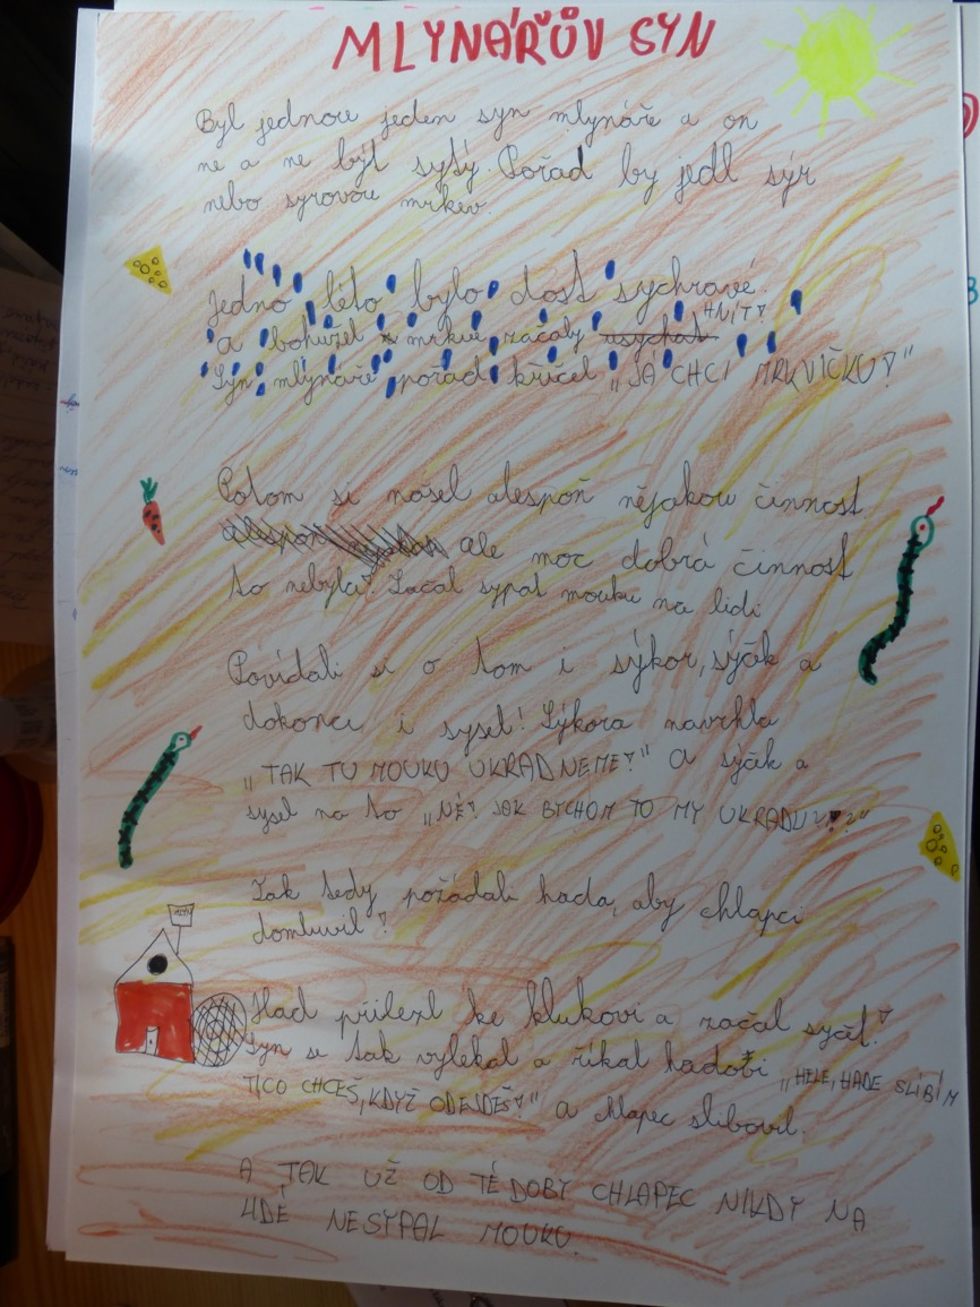 MLYNÁŘŮV SYN
Byl jednou jeden syn mlynáře a on
ne a ne být sytý. Pořád by jedl sýr
nebo syrovou mrkev.
Jedno léto bylo dost sychravé.
HNÍT!
A bohužel mrkve začaly usychat
Syn mlynáře pořád křičel „JÁ CHCI MRKVIČKU!"
Potom si našel alespoň nějakou činnost.
ale moc dobrá činnost
to nebyla! Začal sypat mouku na lidi
Povídali si o tom i sýkor, sýček a
dokonce i sysel! Sýkora navrhla
„TAK TU MOUKU UKRADNEME!" a sýček a
sysel na to „NÉ! JAK BYCHOM TO MY UKRADLI?!?"
Tak tedy požádali hada, aby chlapci
domluvil!
Had přilezl ke klukovi a začal syčet!
Syn se tak vylekal a říkal hadovi „HELE, HADE SLÍBÍM
TI CO CHCEŠ, KDYŽ ODEJDEŠ!" a chlapec slibovil.
A TAK UŽ OD TÉ DOBY CHLAPEC NIKDY NA
LIDÉ NESYPAL MOUKU.